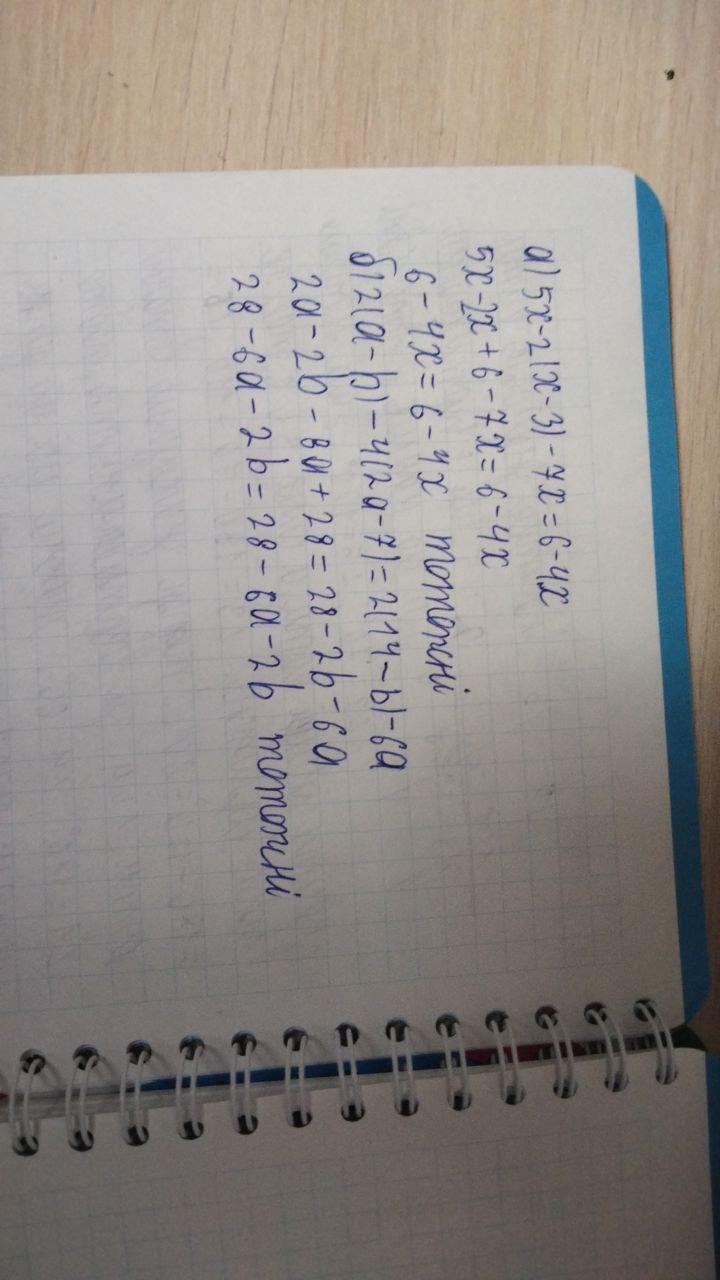 а) 5x-2(x-3)-7x=6-4x
5x-2x+6-7x=6-4x
6-4x=6-4x тотожні
б) 2(a-b)-4(2a-7)=2(14-b)-6a
2a-2b-8a+28=28-2b-6a
28-6a-2b=28-6a-2b тотожні